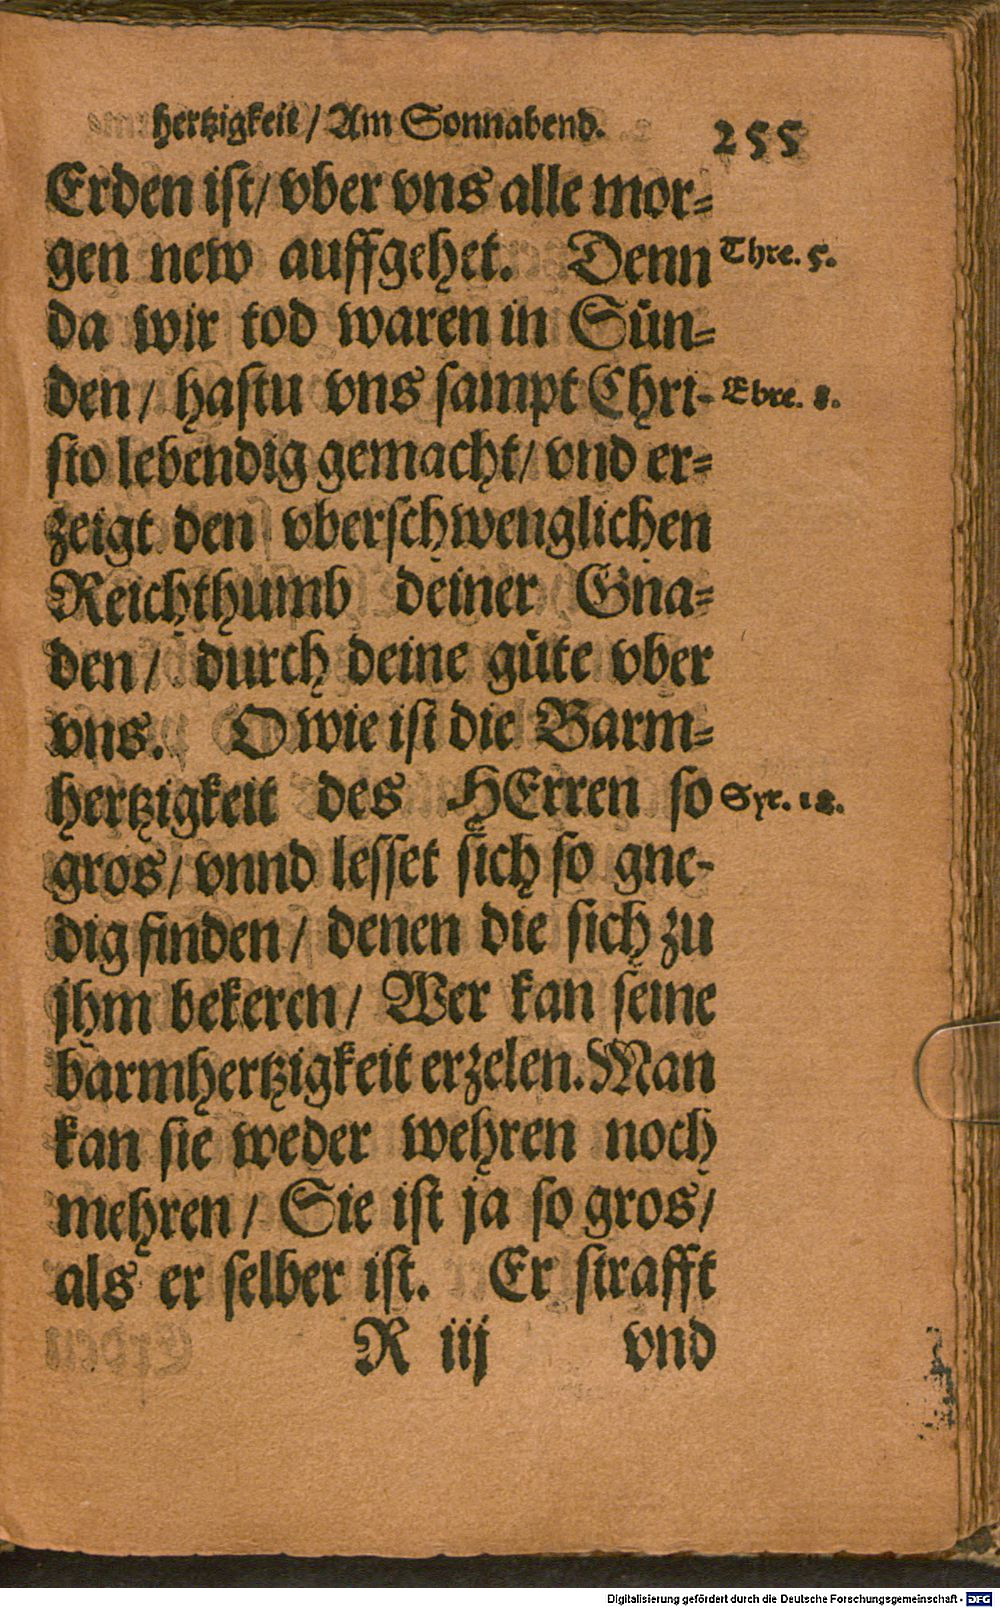 hertzigkeit / Am Sonnabend. 255
Erden ist / vber vns alle mor⸗
gen new auffgehet. Denn Thre. 5.
da wir tod waren in Sün⸗
den / hastu vns sampt Chri- Ebre. 8.
sto lebendig gemacht / vnd er⸗
zeigt den vberschwenglichen
Reichthumb deiner Gna⸗
den / durch deine güte vber
vns. O wie ist die Barm⸗
hertzigkeit des HErren so Syr. 18.
gros / vnnd lesset sich so gne-
dig finden / denen die sich zu
jhm bekeren / Wer kan seine
barmhertzigkeit erzelen. Man
kan sie weder wehren noch
mehren / Sie ist ja so gros /
als er selber ist. Er strafft
R iij vnd
Digitalisierung gefördert durch die Deutsche Forschungsgemeinschaft - DFG